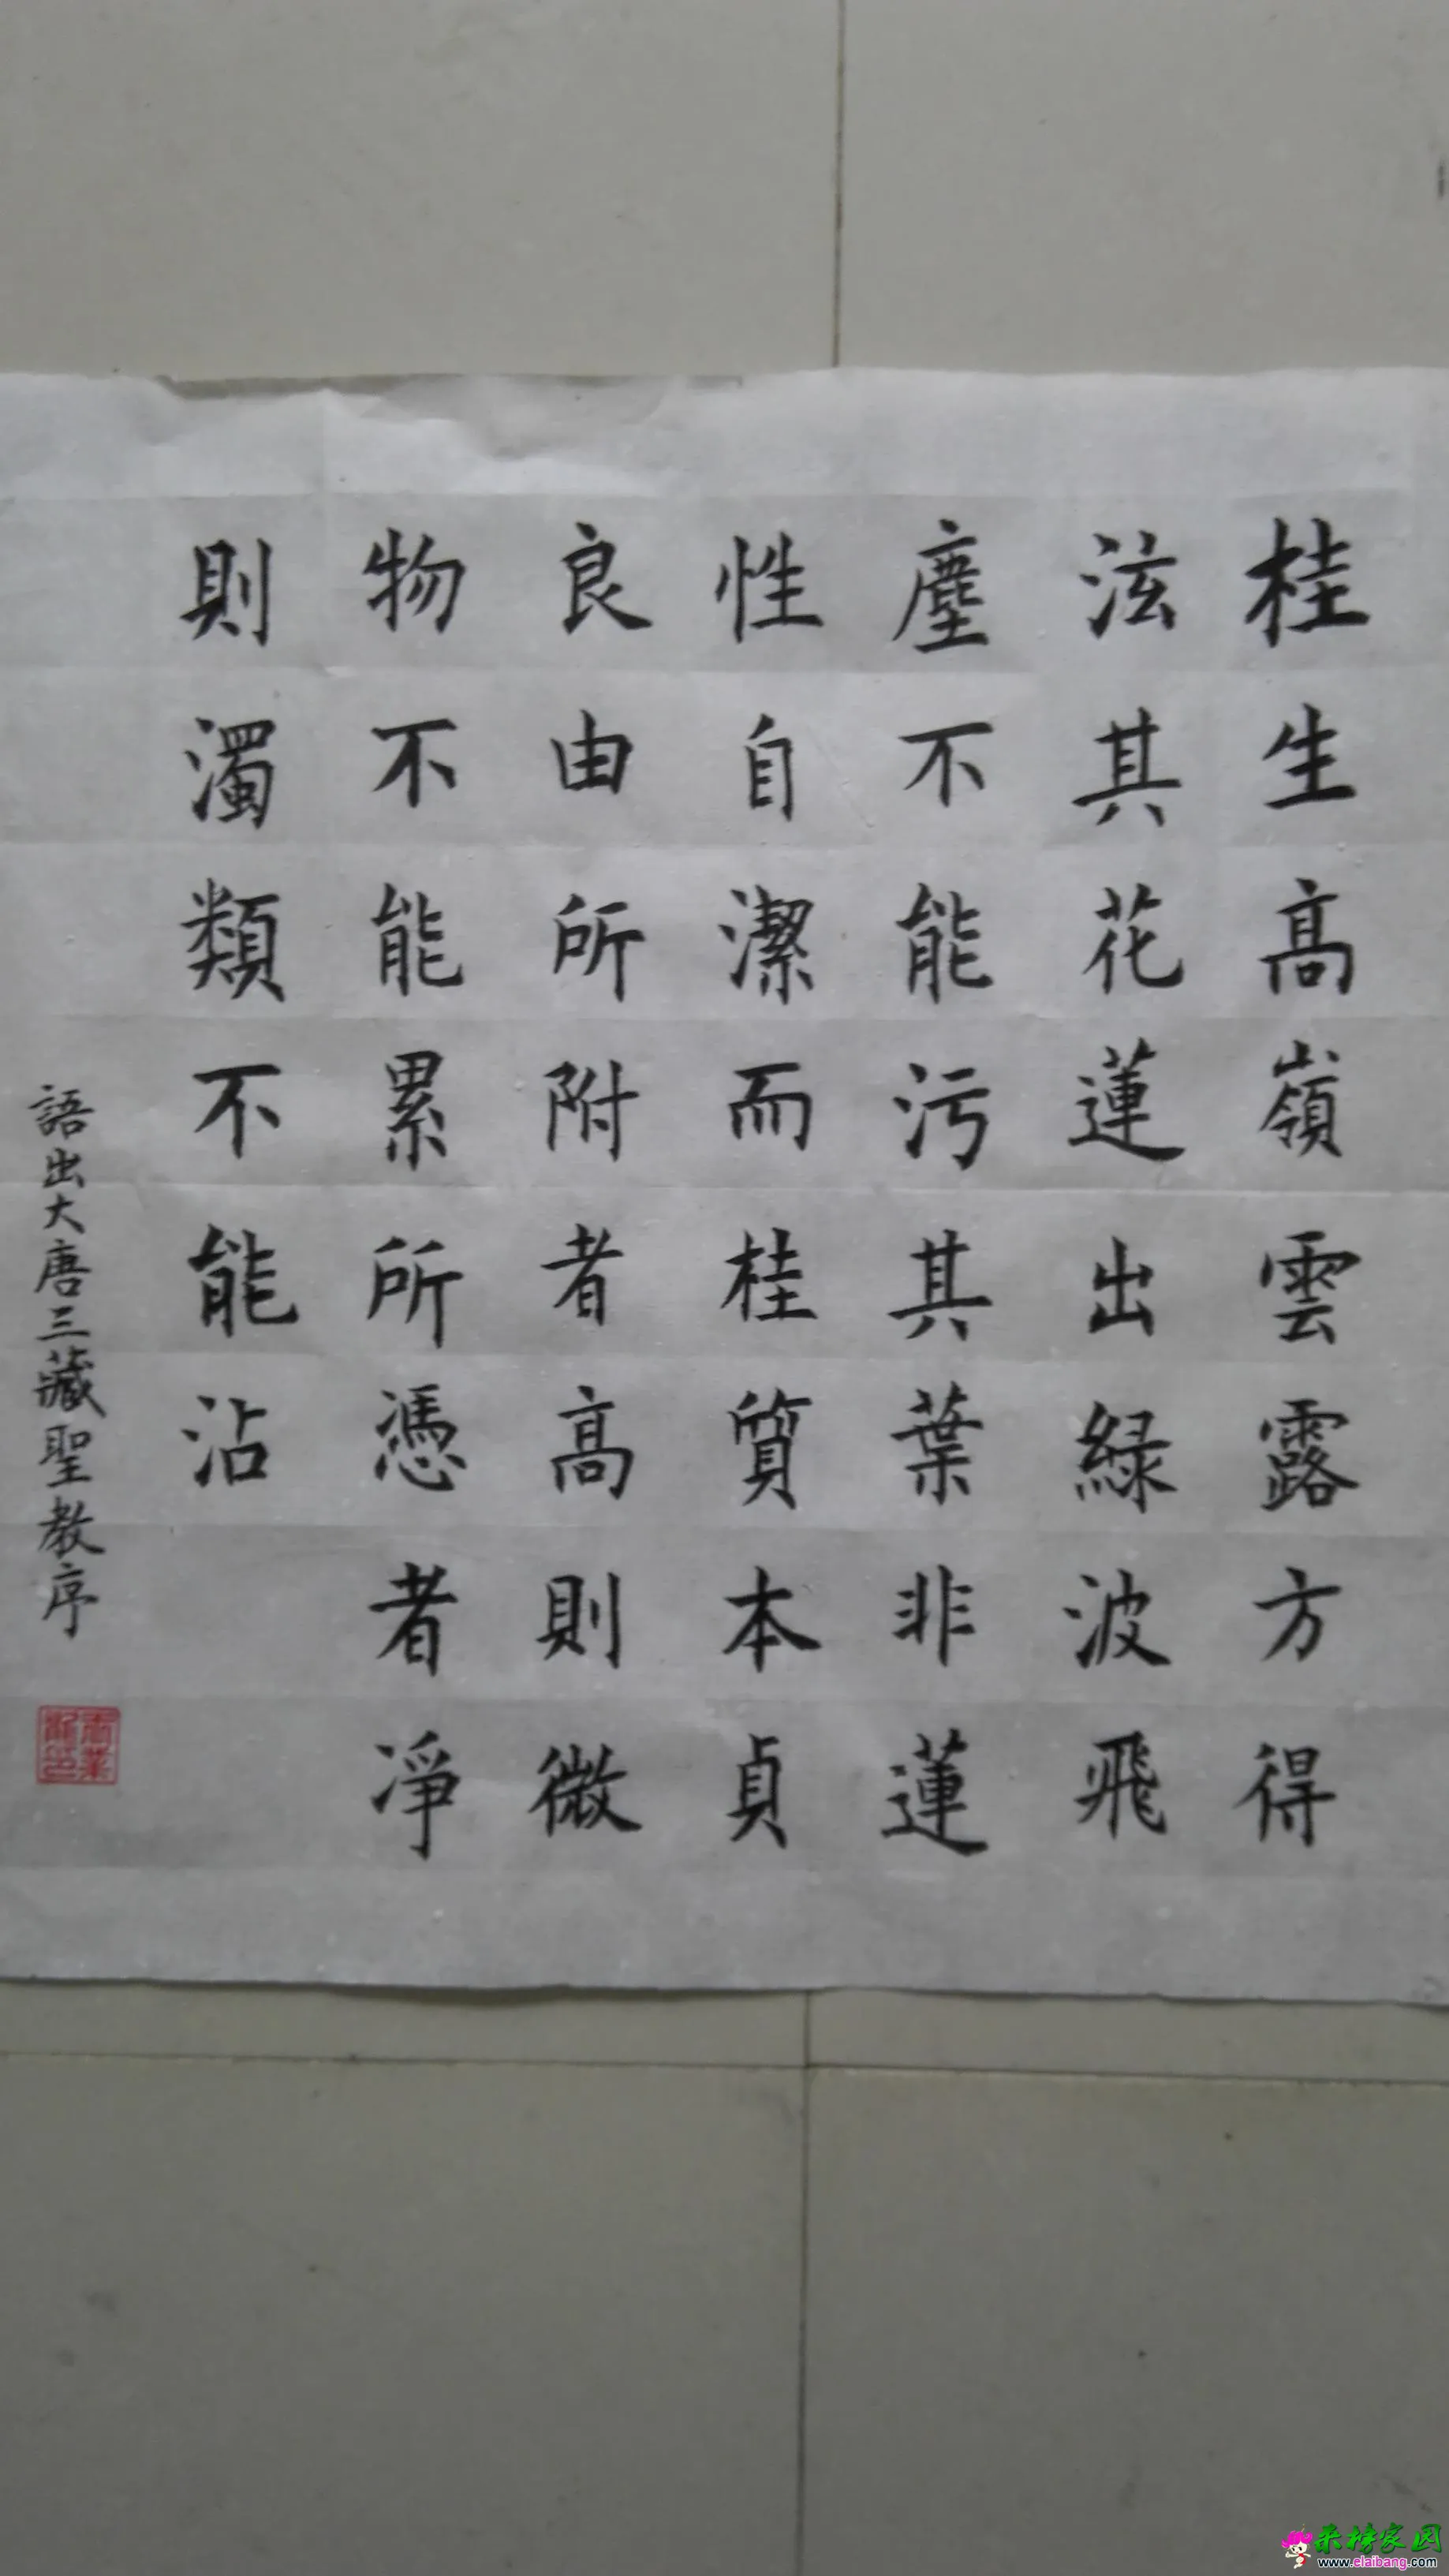 桂生高嶺雲露方得
泫其花蓮出緑波飛
塵不能污其葉非蓮
性自潔而桂質本貞
良由所附者高則微
物不能累所憑者淨
則濁類不能沾
語出大唐三藏聖教序
来榜家园
www.elaibang.com